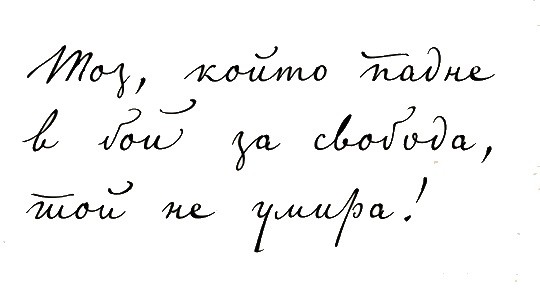 Тоз, който падне
в бой за свобода,
той не умира!